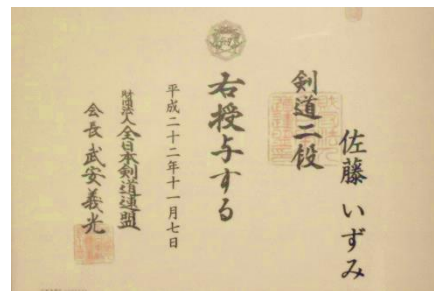 佐藤いずみ
剣道二段
右授与する
平成二十二年十一月七日
財団法人全日本剣道連盟
会長武安義光